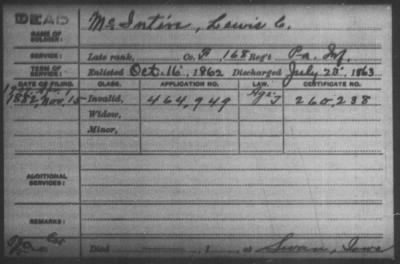 DEAD
NAME OF SOLDIER: McIntire, Lewis C.
SERVICE: Late rank, Co. F, 168 Reg't Pa. Inf.
TERM OF SERVICE: Enlisted Oct. 16, 1862 Discharged July 25, 1863
DATE OF FILING. CLASS. APPLICATION NO. LAW. CERTIFICATE NO.
1882, Nov. 15 Invalid, 464,949 260,238
Widow,
Minor,
ADDITIONAL SERVICES:
REMARKS:
Died , 1 , at Swan, Iowa